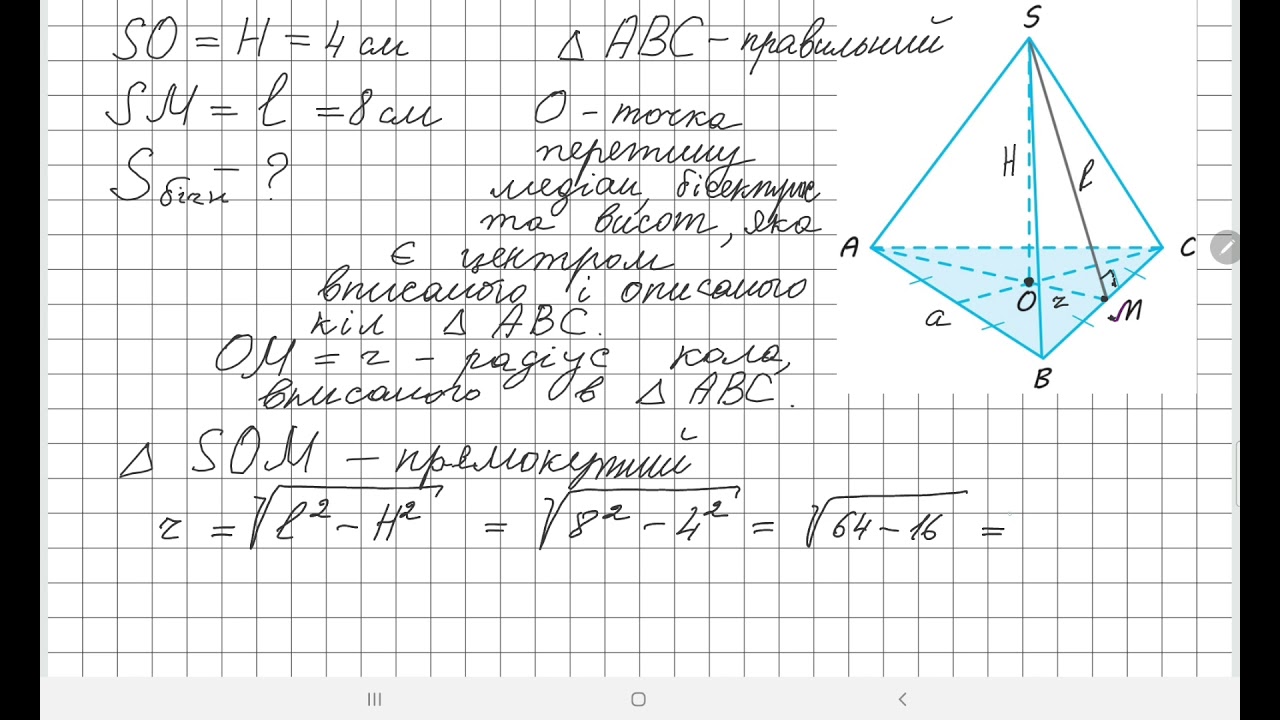 SO = H = 4 см
SM = l = 8 см
Sбічн - ?
Δ ABC - правильний
O - точка
перетину
медіан, бісектрис
та висот, яка
є центром
вписаного і описаного
кіл Δ ABC.
OM = r - радіус кола,
вписаного в Δ ABC.
Δ SOM - прямокутний
r = √(l² - H²) = √(8² - 4²) = √(64 - 16) =
S
H
l
A
C
O
r
M
a
B